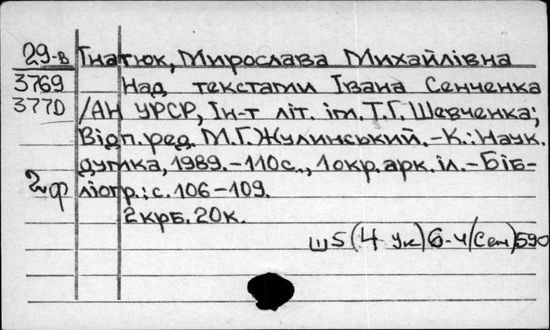 29-в Гнатюк, Мирослава Михайлівна
3769 Над текстами Івана Сенченка
3770 /АН УРСР, Ін-т літ. ім. Т.Г. Шевченка;
Відп. ред. М.Г. Жулинський. -К.: Наук.
думка, 1989. - 110с., 1 окр. арк. іл. - Біб-
2~ф ліогр.: с. 106-109.
2крб. 20к.
ш5(4 Ук)6-4(Сен)590